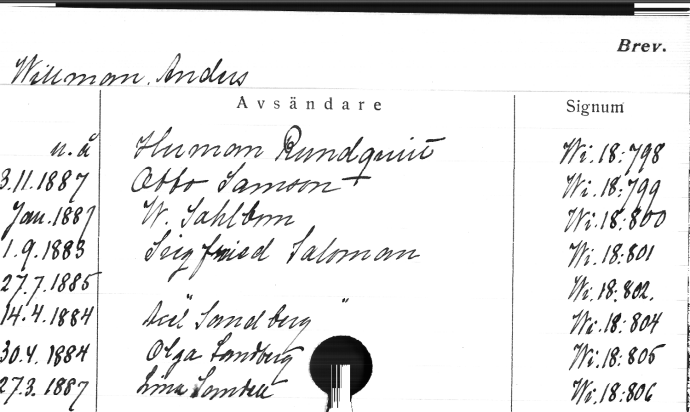 Brev.
Willman, Anders
Avsändare Signum
u. å Herman Rundquist Wi. 18:798
3.11.1887 Otto Samson Wi. 18:799
Jan. 1887 W. Sahlbom Wi. 18:800
1.9.1883 Seigfried Saloman Wi. 18:801
27.7.1885 " Wi. 18:802.
14.4.1884 Sandberg Wi. 18:804
30.4.1884 Olga Sandberg Wi. 18:805
27.3.1887 Lina Sandell Wi. 18:806